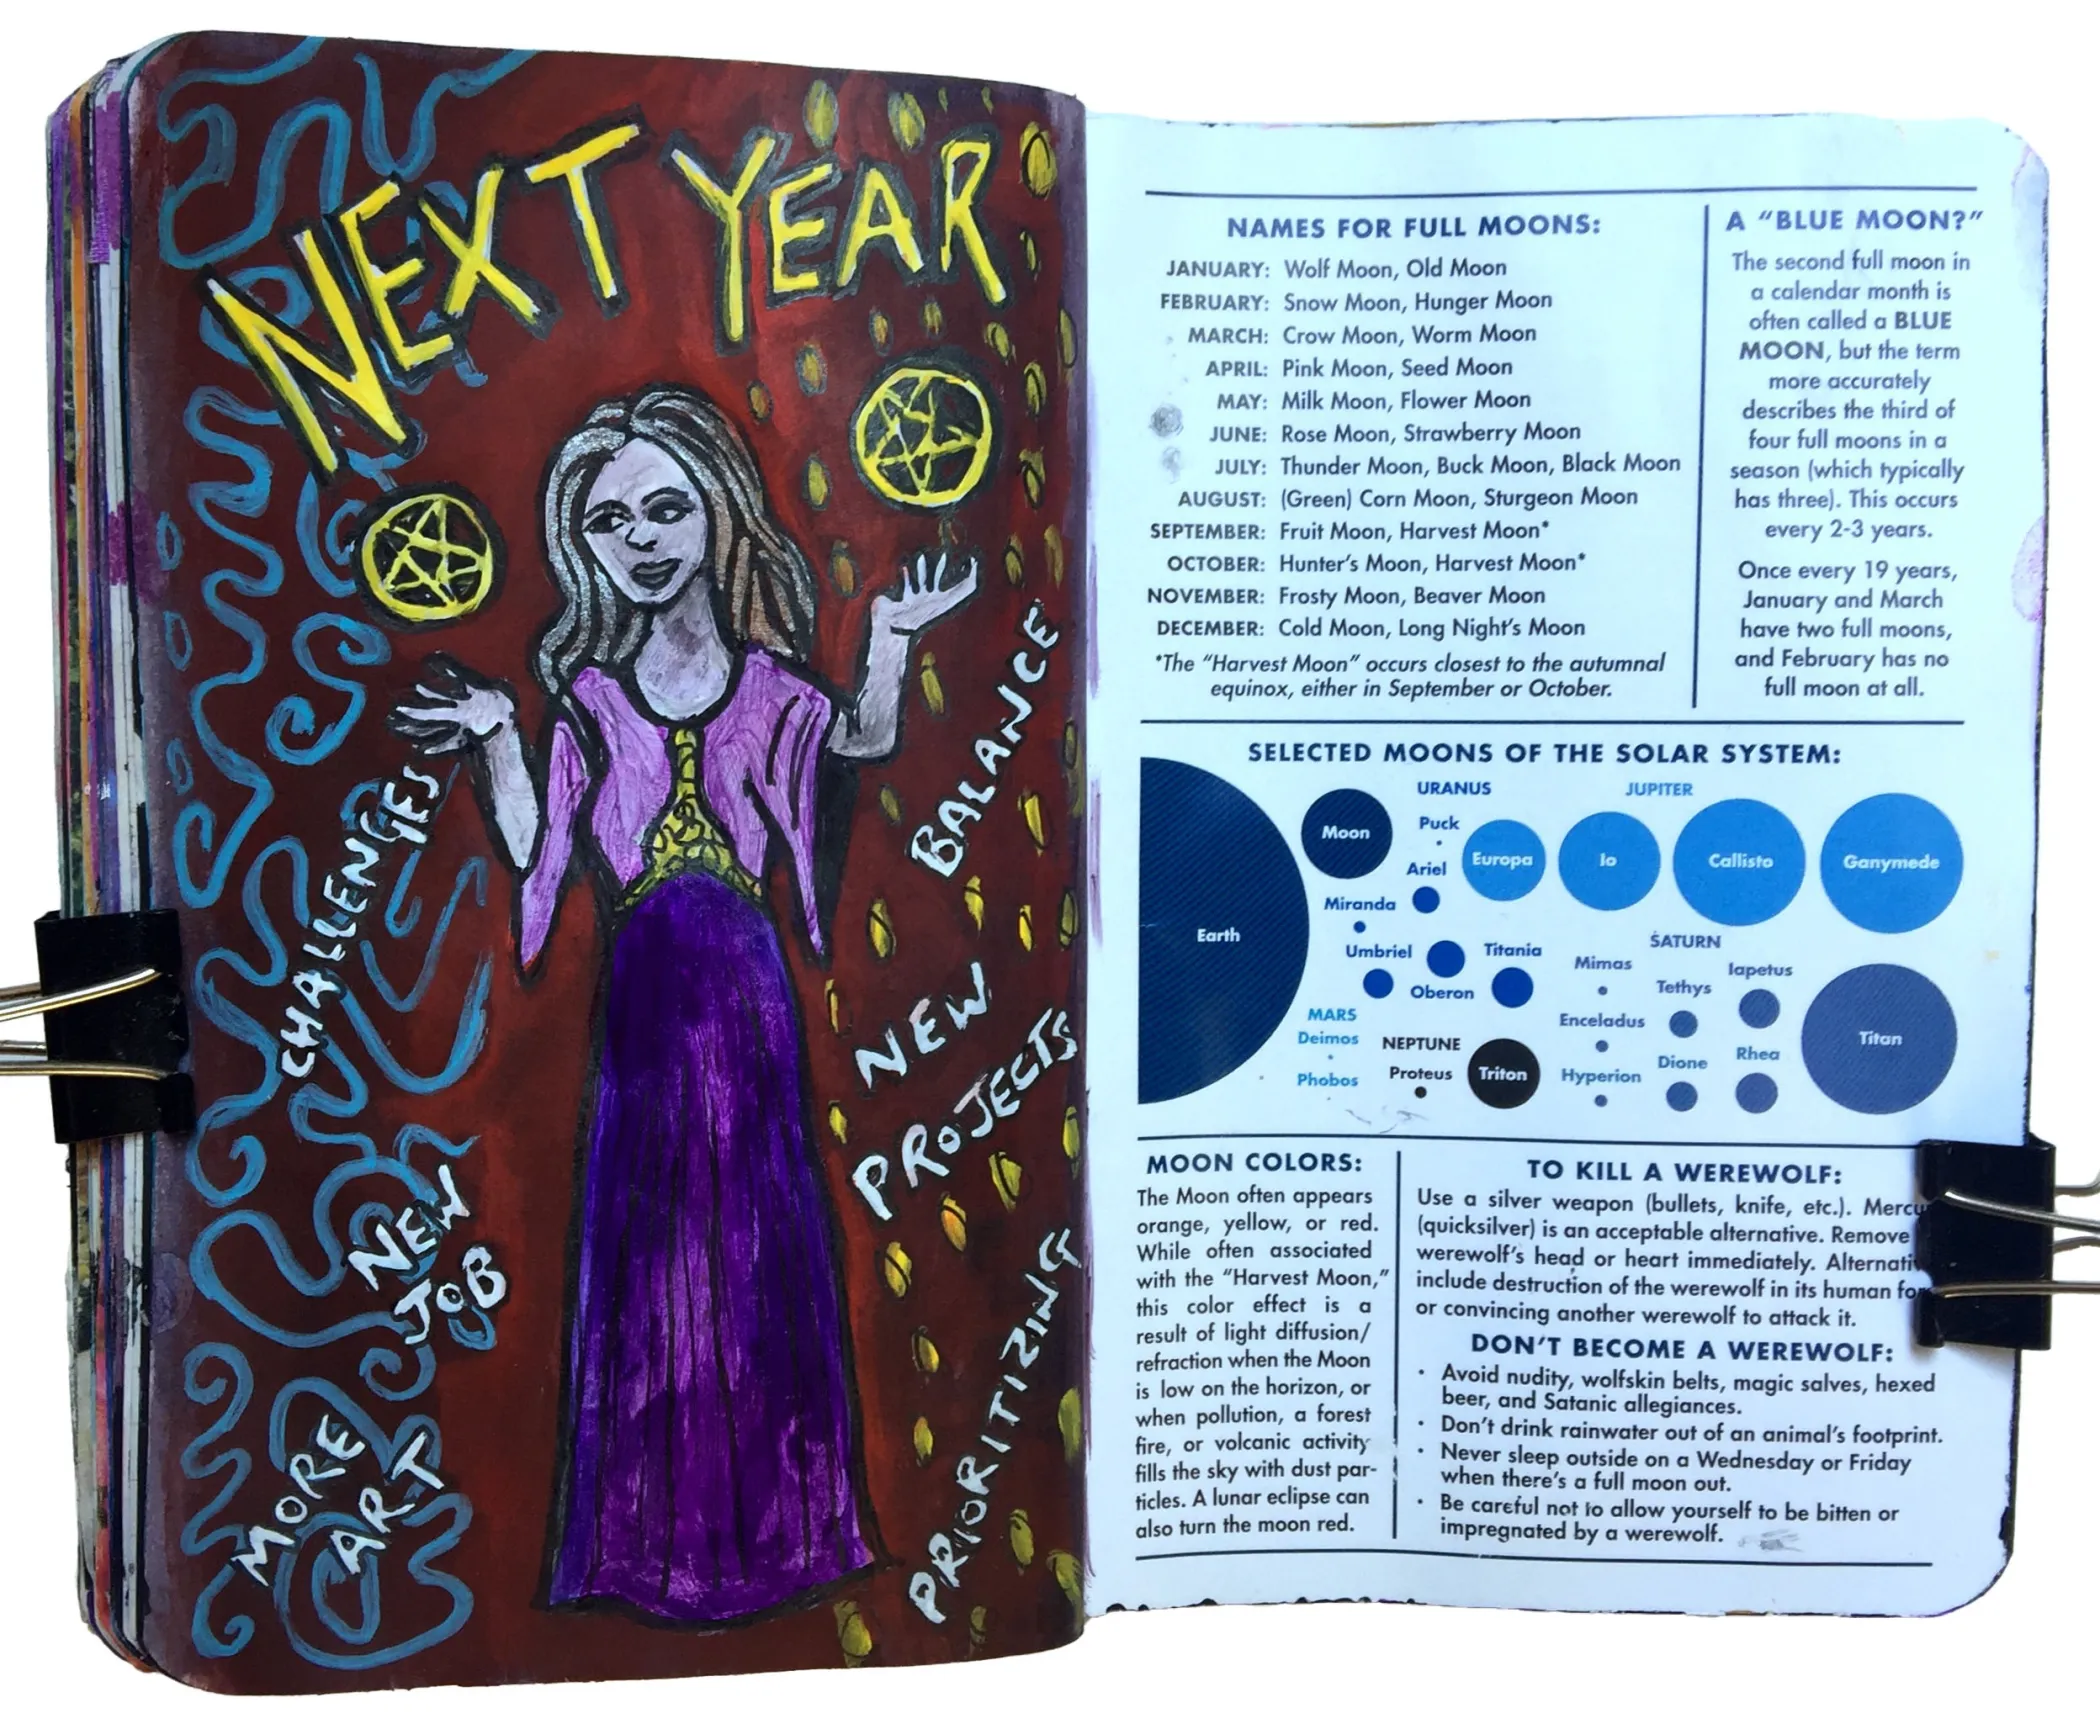 NEXT YEAR
CHALLENGES
NEW
JOB
MORE
ART
BALANCE
NEW
PROJECTS
PRIORITIZING
NAMES FOR FULL MOONS:
JANUARY: Wolf Moon, Old Moon
FEBRUARY: Snow Moon, Hunger Moon
MARCH: Crow Moon, Worm Moon
APRIL: Pink Moon, Seed Moon
MAY: Milk Moon, Flower Moon
JUNE: Rose Moon, Strawberry Moon
JULY: Thunder Moon, Buck Moon, Black Moon
AUGUST: (Green) Corn Moon, Sturgeon Moon
SEPTEMBER: Fruit Moon, Harvest Moon*
OCTOBER: Hunter's Moon, Harvest Moon*
NOVEMBER: Frosty Moon, Beaver Moon
DECEMBER: Cold Moon, Long Night's Moon
*The "Harvest Moon" occurs closest to the autumnal
equinox, either in September or October.
A "BLUE MOON?"
The second full moon in
a calendar month is
often called a BLUE
MOON, but the term
more accurately
describes the third of
four full moons in a
season (which typically
has three). This occurs
every 2-3 years.
Once every 19 years,
January and March
have two full moons,
and February has no
full moon at all.
SELECTED MOONS OF THE SOLAR SYSTEM:
Earth
Moon
URANUS
Puck
Ariel
Miranda
Umbriel
Titania
Oberon
JUPITER
Europa
Io
Callisto
Ganymede
MARS
Deimos
Phobos
NEPTUNE
Proteus
Triton
SATURN
Mimas
Tethys
Iapetus
Enceladus
Dione
Rhea
Hyperion
Titan
MOON COLORS:
The Moon often appears
orange, yellow, or red.
While often associated
with the "Harvest Moon,"
this color effect is a
result of light diffusion/
refraction when the Moon
is low on the horizon, or
when pollution, a forest
fire, or volcanic activity
fills the sky with dust par-
ticles. A lunar eclipse can
also turn the moon red.
TO KILL A WEREWOLF:
Use a silver weapon (bullets, knife, etc.).
(quicksilver) is an acceptable alternative. Remove
werewolf's head or heart immediately.
include destruction of the werewolf in its human
or convincing another werewolf to attack it.
DON'T BECOME A WEREWOLF:
• Avoid nudity, wolfskin belts, magic salves, hexed
beer, and Satanic allegiances.
• Don't drink rainwater out of an animal's footprint.
• Never sleep outside on a Wednesday or Friday
when there's a full moon out.
• Be careful not to allow yourself to be bitten or
impregnated by a werewolf.